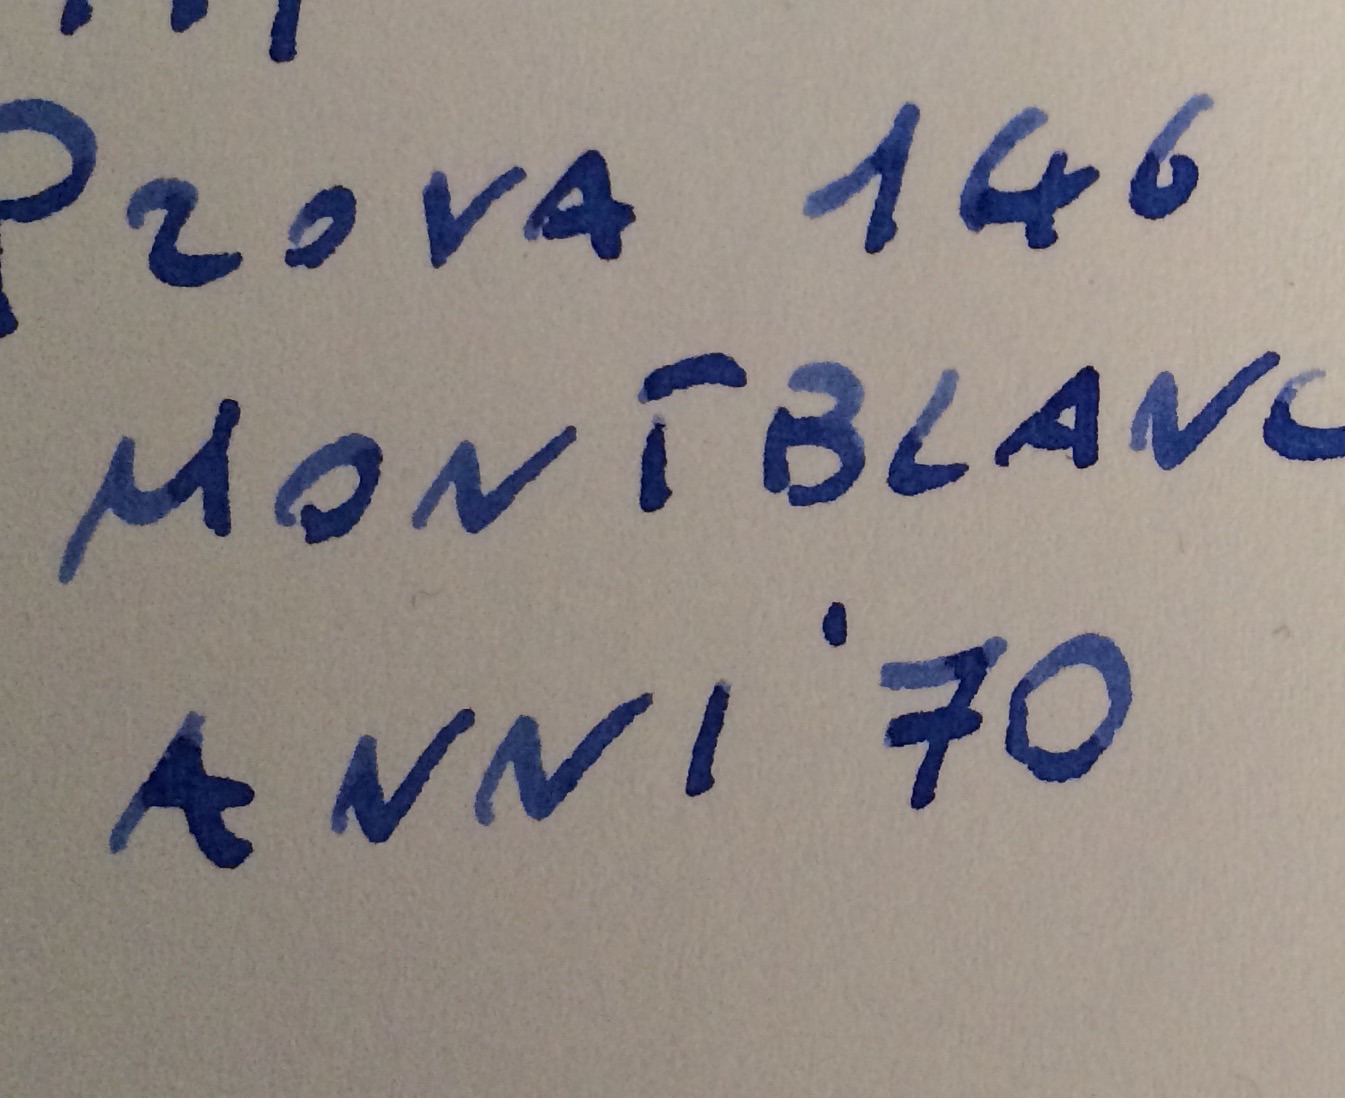 Prova 146
MONTBLANC
ANNI '70